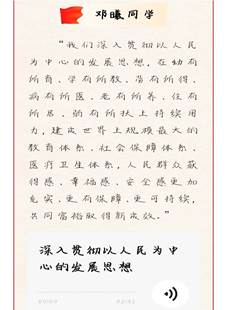 邓曦同学
“我们深入贯彻以人民
为中心的发展思想，在幼有
所育、学有所教、劳有所得、
病有所医、老有所养、住有
所居、弱有所扶上持续用
力，建成世界上规模最大的
教育体系、社会保障体系、
医疗卫生体系，人民群众获
得感、幸福感、安全感更加
充实、更有保障、更可持续，
共同富裕取得新成效。”
深入贯彻以人民为中
心的发展思想